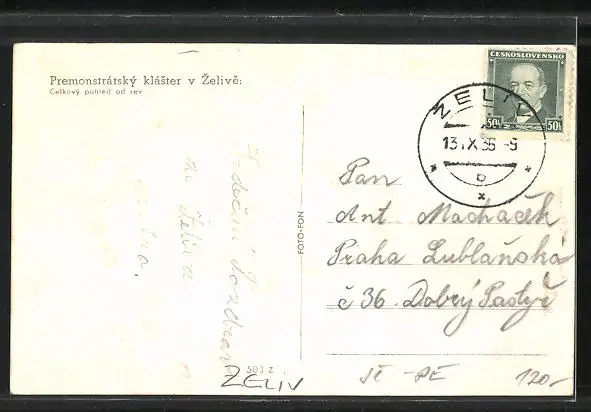 Premonstrátský klášter v Želivě:
Celkový pohled od sev
ČESKOSLOVENSKO
50h 50h
ŽELIV
13.IX.36-9
b
Srdečný Pozdrav
ze Želiva
FOTO-FON
Pan
Ant Macháček
Praha Lublaňská
č 36. Dobrý Pastýř
503 Z
ZELIV
JČ-PE
120-